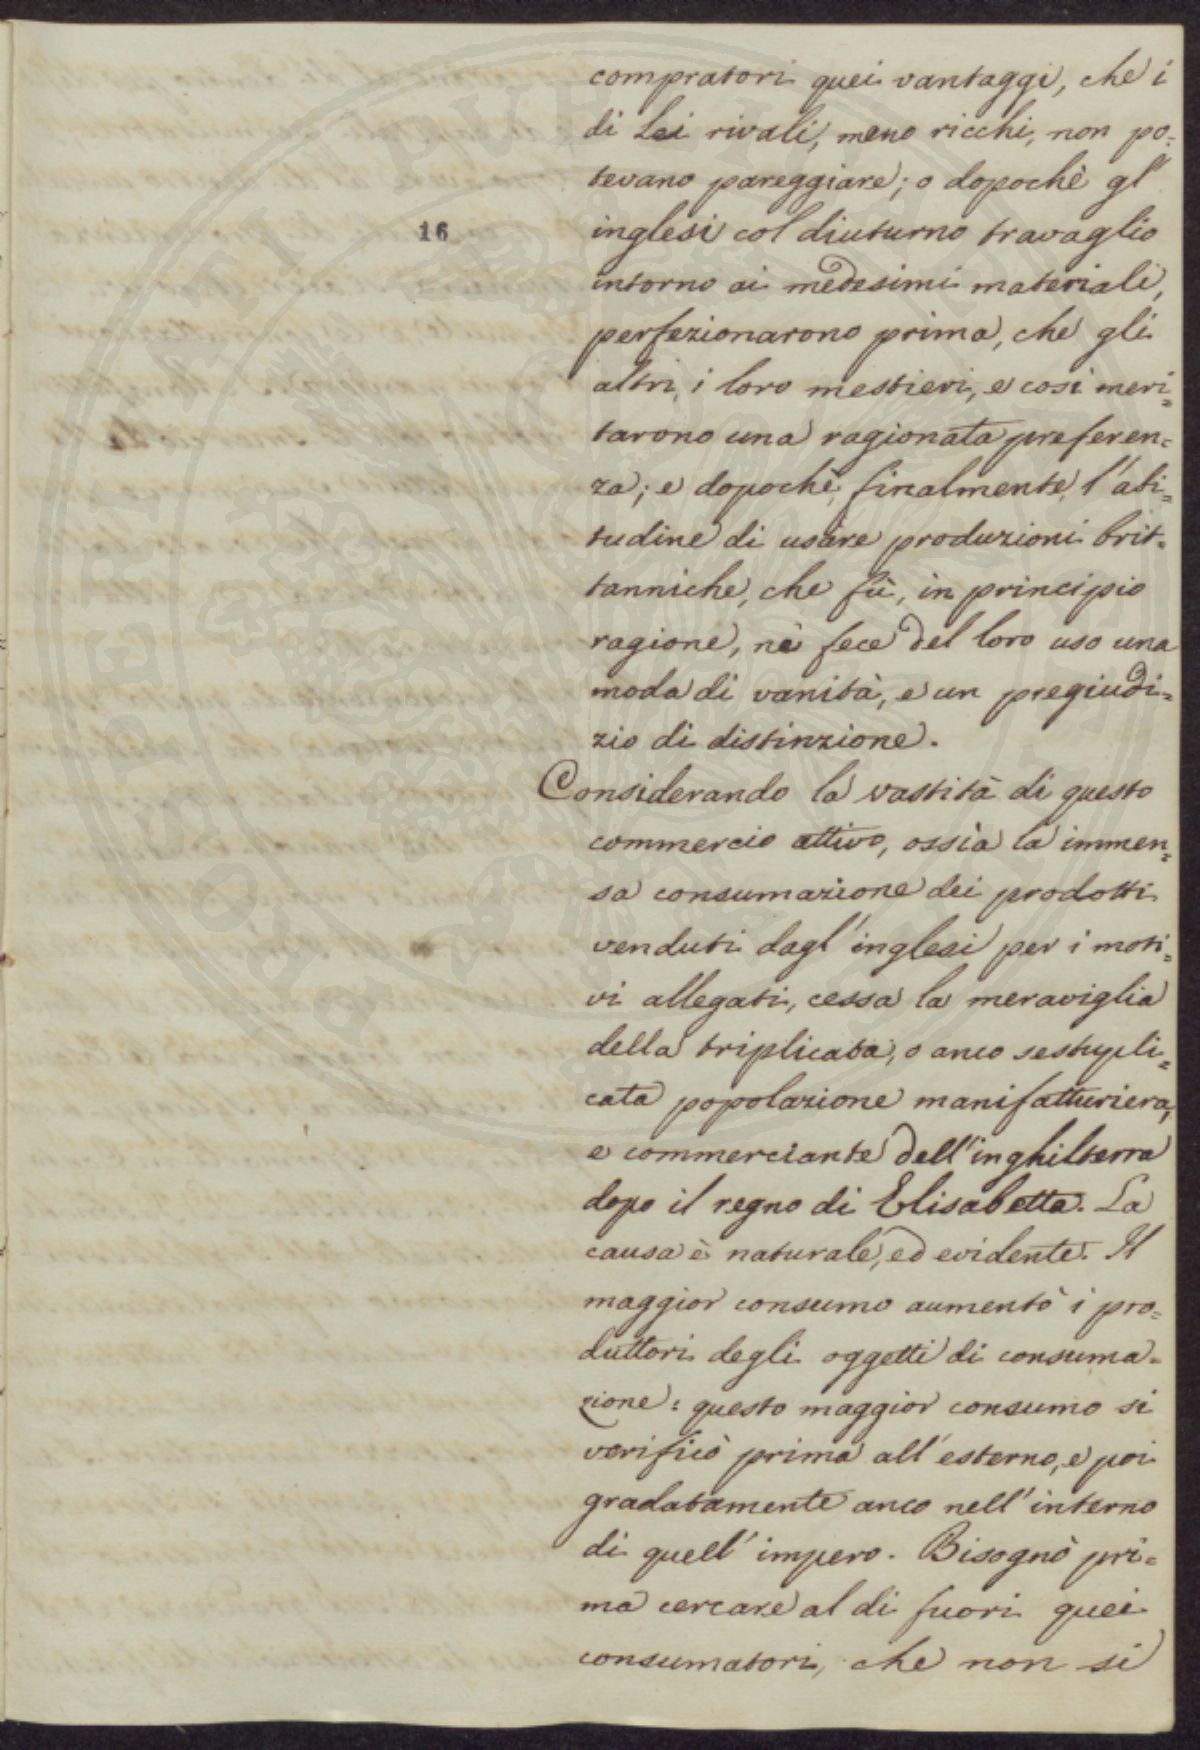 16
compratori quei vantaggi, che i
di Lei rivali, meno ricchi, non po=
tevano pareggiare; o dopochè gl'
inglesi col diuturno travaglio
intorno ai medesimi materiali,
perfezionarono prima, che gli
altri, i loro mestieri, e così meri=
tarono una ragionata preferen=
za; e dopochè, finalmente, l'abi=
tudine di usare produzioni brit=
tanniche, che fù, in principio
ragione, nè fece del loro uso una
moda di vanità, e un pregiudi=
zio di distinzione.
Considerando la vastità di questo
commercio attivo, ossìa la immen=
sa consumazione dei prodotti
venduti dagl'inglesi per i moti=
vi allegati, cessa la meraviglia
della triplicata, o anco sestupli=
cata popolazione manifatturiera,
e commerciante dell'inghilterra
dopo il regno di Elisabetta. La
causa è naturale, ed evidente. Il
maggior consumo aumentò i pro=
duttori degli oggetti di consuma=
zione: questo maggior consumo si
verificò prima all'esterno, e poi
gradatamente anco nell'interno
di quell'impero. Bisognò pri=
ma cercare al di fuori quei
consumatori, che non si